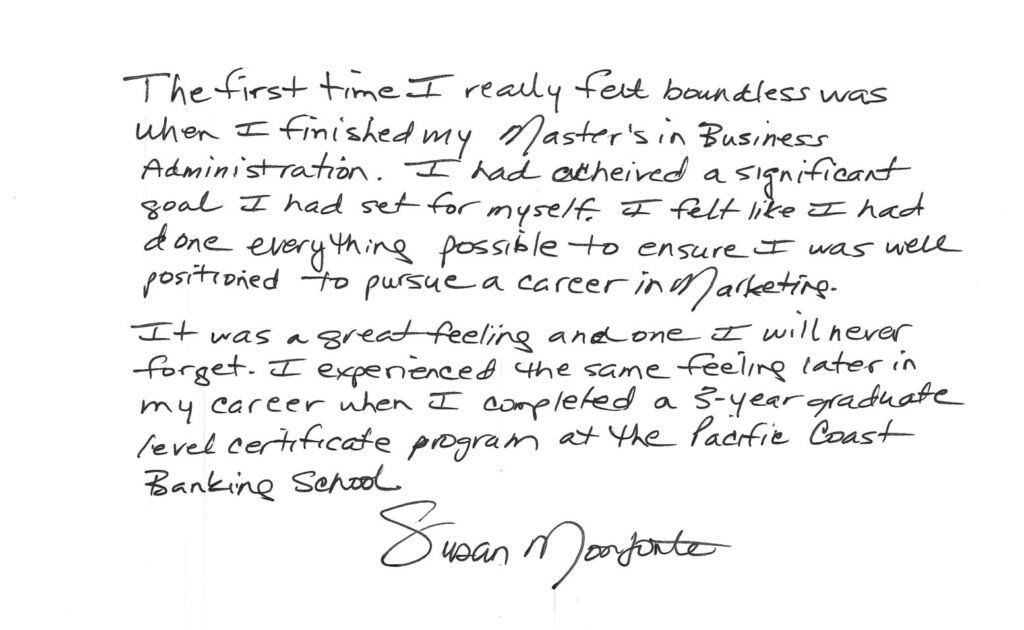 The first time I really felt boundless was
when I finished my Master's in Business
Administration. I had acheived a significant
goal I had set for myself. I felt like I had
done everything possible to ensure I was well
positioned to pursue a career in Marketing.
It was a great feeling and one I will never
forget. I experienced the same feeling later in
my career when I completed a 3-year graduate
level certificate program at the Pacific Coast
Banking School.
Susan